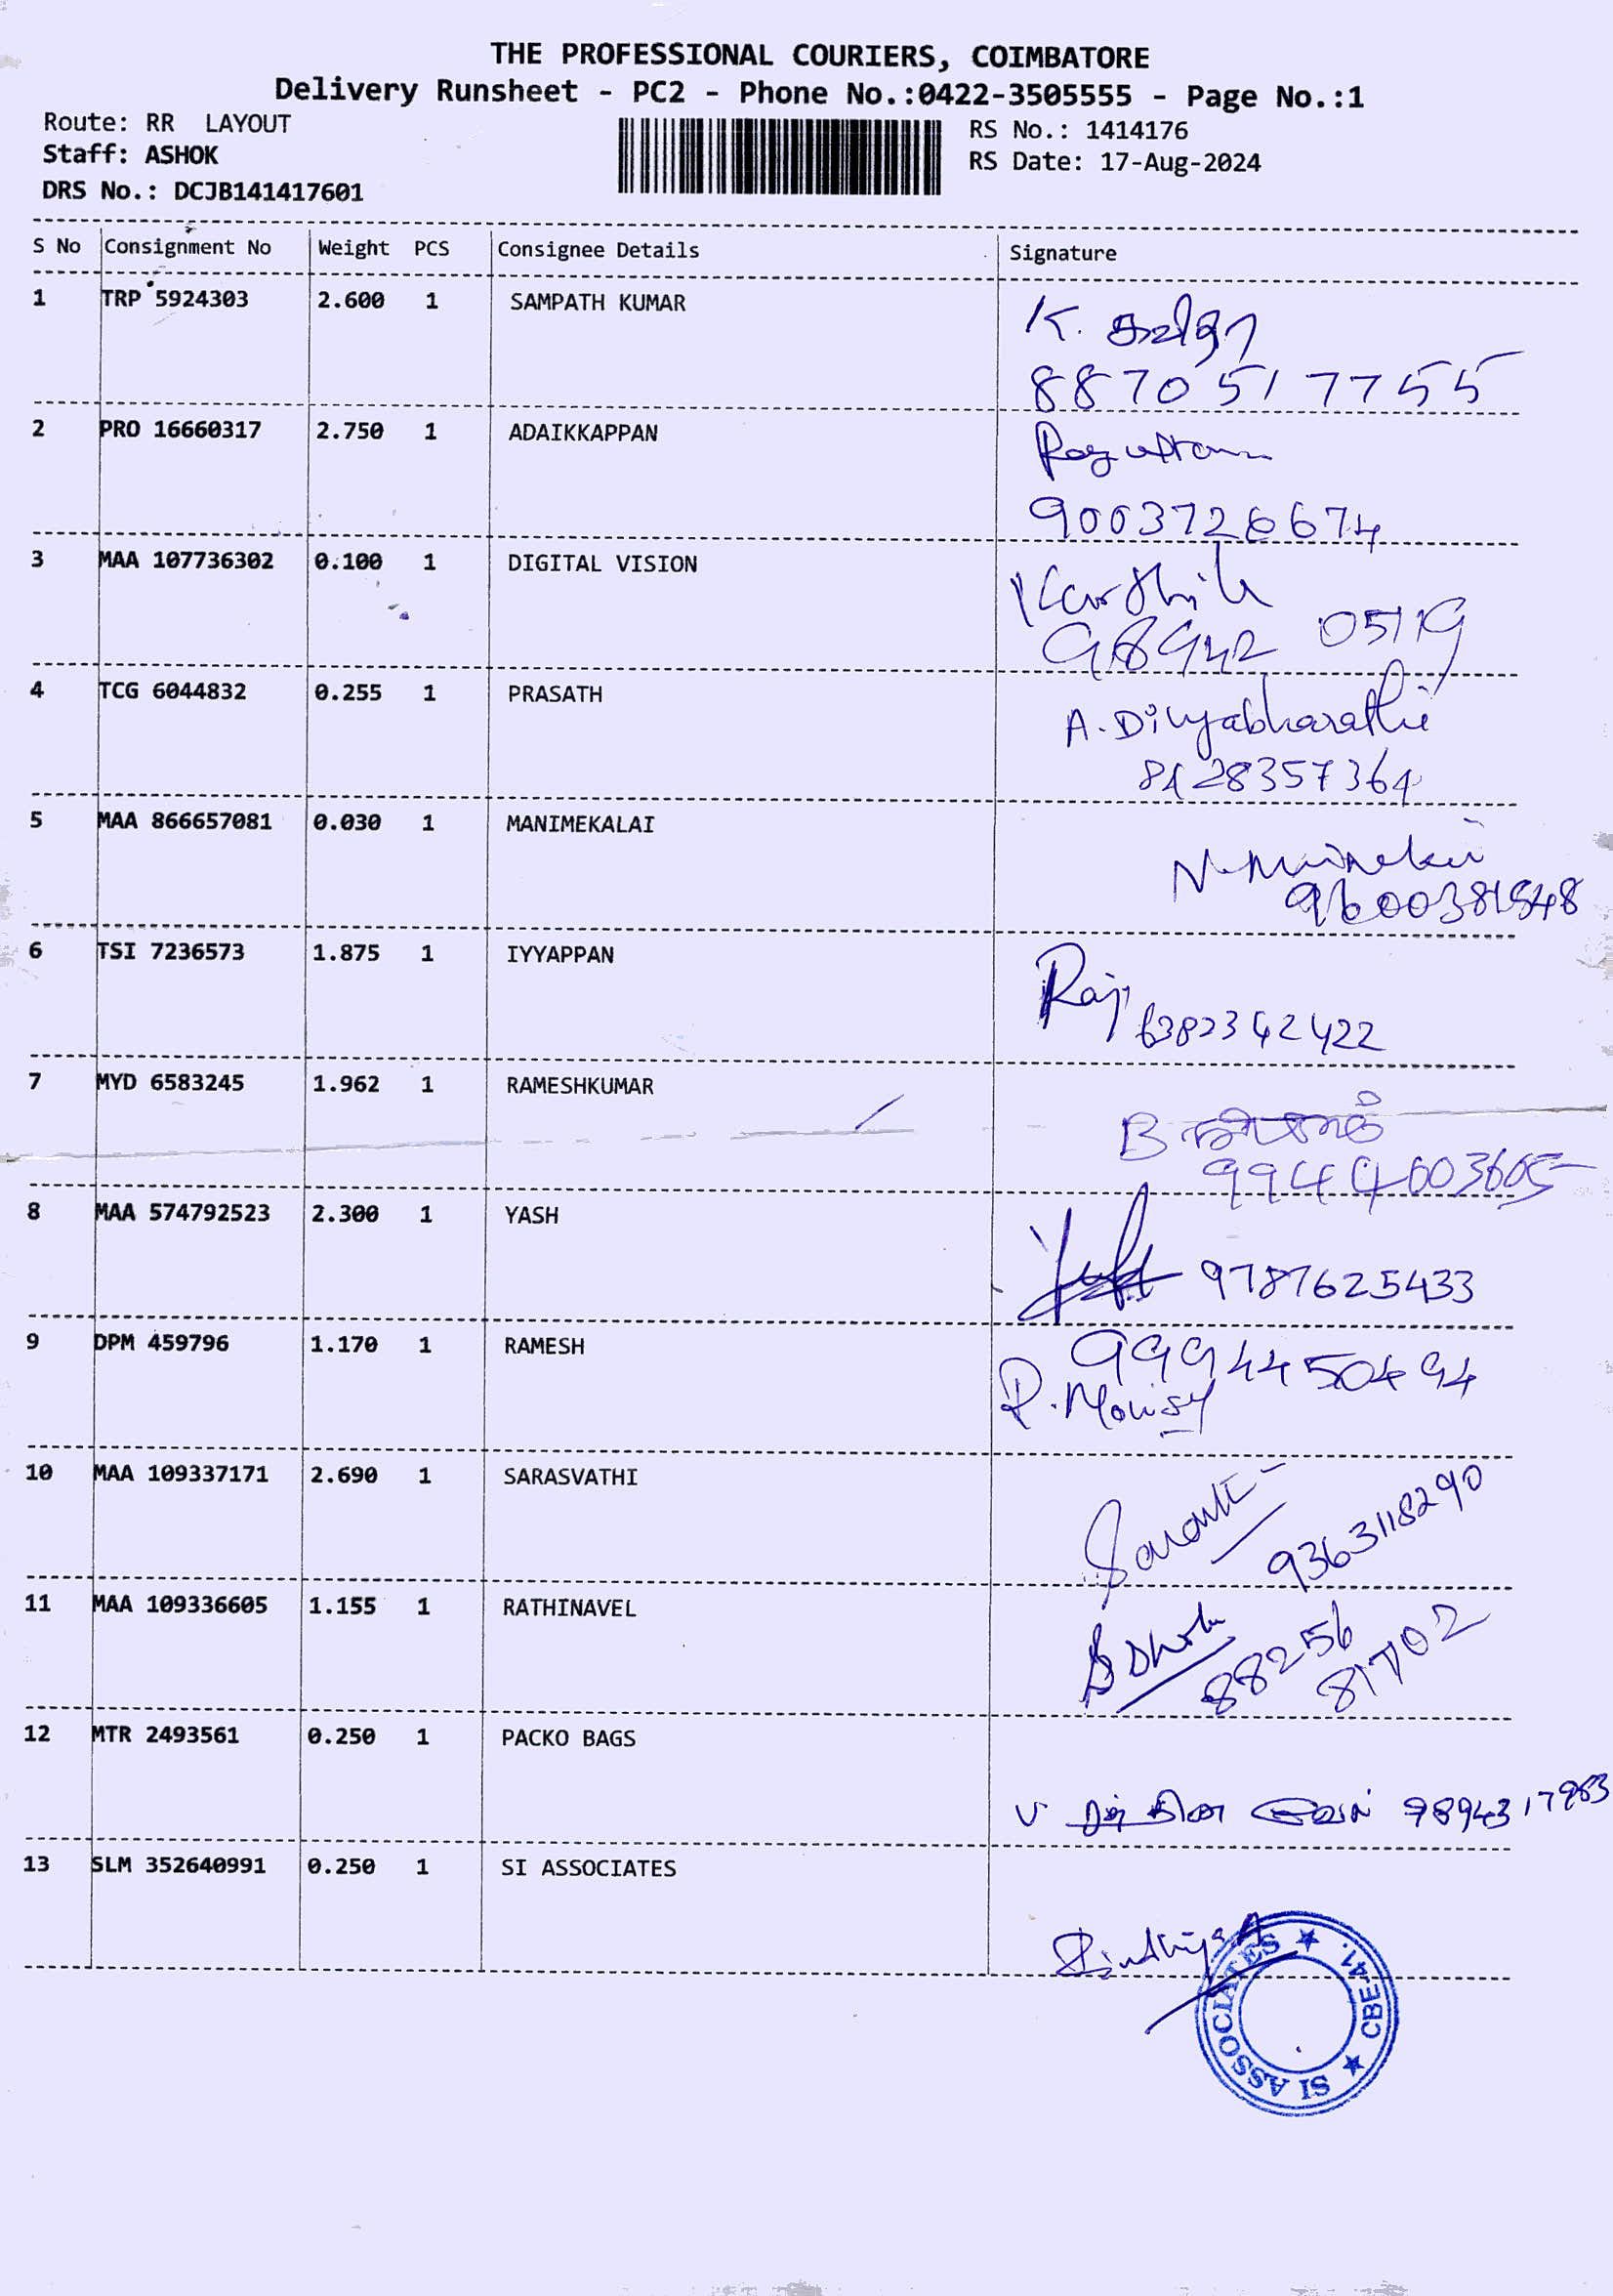 THE PROFESSIONAL COURIERS, COIMBATORE
Delivery Runsheet - PC2 - Phone No.:0422-3505555 - Page No.:1
Route: RR LAYOUT
Staff: ASHOK
DRS No.: DCJB141417601
RS No.: 1414176
RS Date: 17-Aug-2024
S No Consignment No Weight PCS Consignee Details Signature
1 TRP 5924303 2.600 1 SAMPATH KUMAR
K. கவிதா
8870517755
2 PRO 16660317 2.750 1 ADAIKKAPPAN
9003726674
3 MAA 107736302 0.100 1 DIGITAL VISION
Karthik
98942 05119
4 TCG 6044832 0.255 1 PRASATH
A. Divyabharathi
8428357364
5 MAA 866657081 0.030 1 MANIMEKALAI
9600381548
6 TSI 7236573 1.875 1 IYYAPPAN
Raji 6382342422
7 MYD 6583245 1.962 1 RAMESHKUMAR
B
9944003605
8 MAA 574792523 2.300 1 YASH
9787625433
9 DPM 459796 1.170 1 RAMESH
9994450494
P. Mouisy
10 MAA 109337171 2.690 1 SARASVATHI
9363118290
11 MAA 109336605 1.155 1 RATHINAVEL
Ashok 88256
81702
12 MTR 2493561 0.250 1 PACKO BAGS
V ரத்தின வேல் 9894317983
13 SLM 352640991 0.250 1 SI ASSOCIATES
Sinthiya.A
SI ASSOCIATES ★ CBE-41. ★